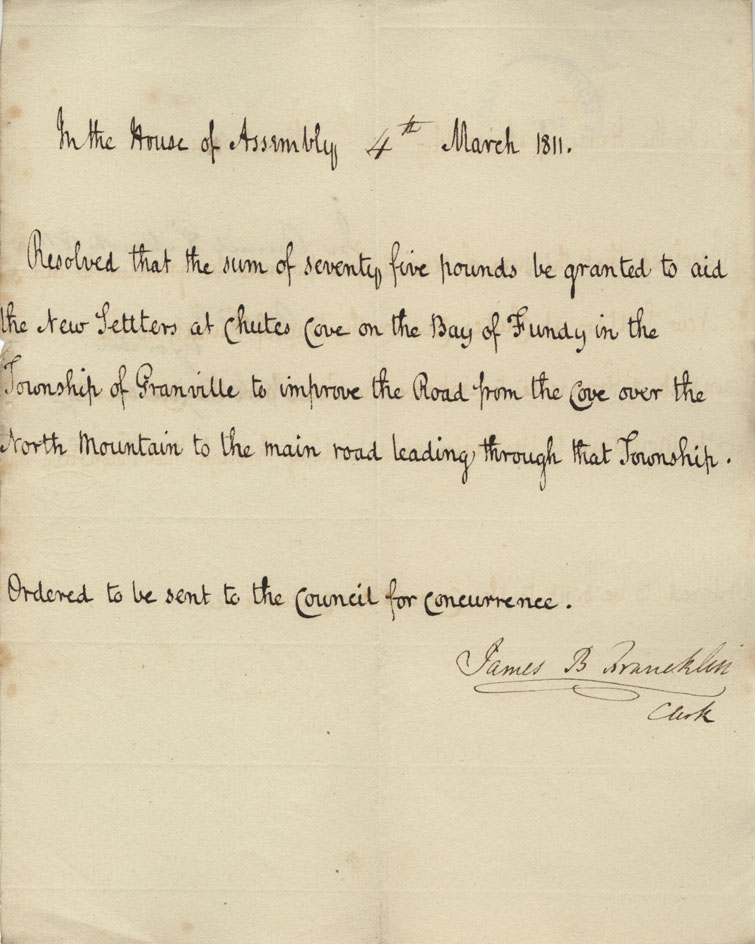 In the House of Assembly 4th March 1811.
Resolved that the sum of seventy five pounds be granted to aid
the New Settlers at Chutes Cove on the Bay of Fundy in the
Township of Granville to improve the Road from the Cove over the
North Mountain to the main road leading through that Township.
Ordered to be sent to the Council for concurrence.
James B Francklin
Clerk